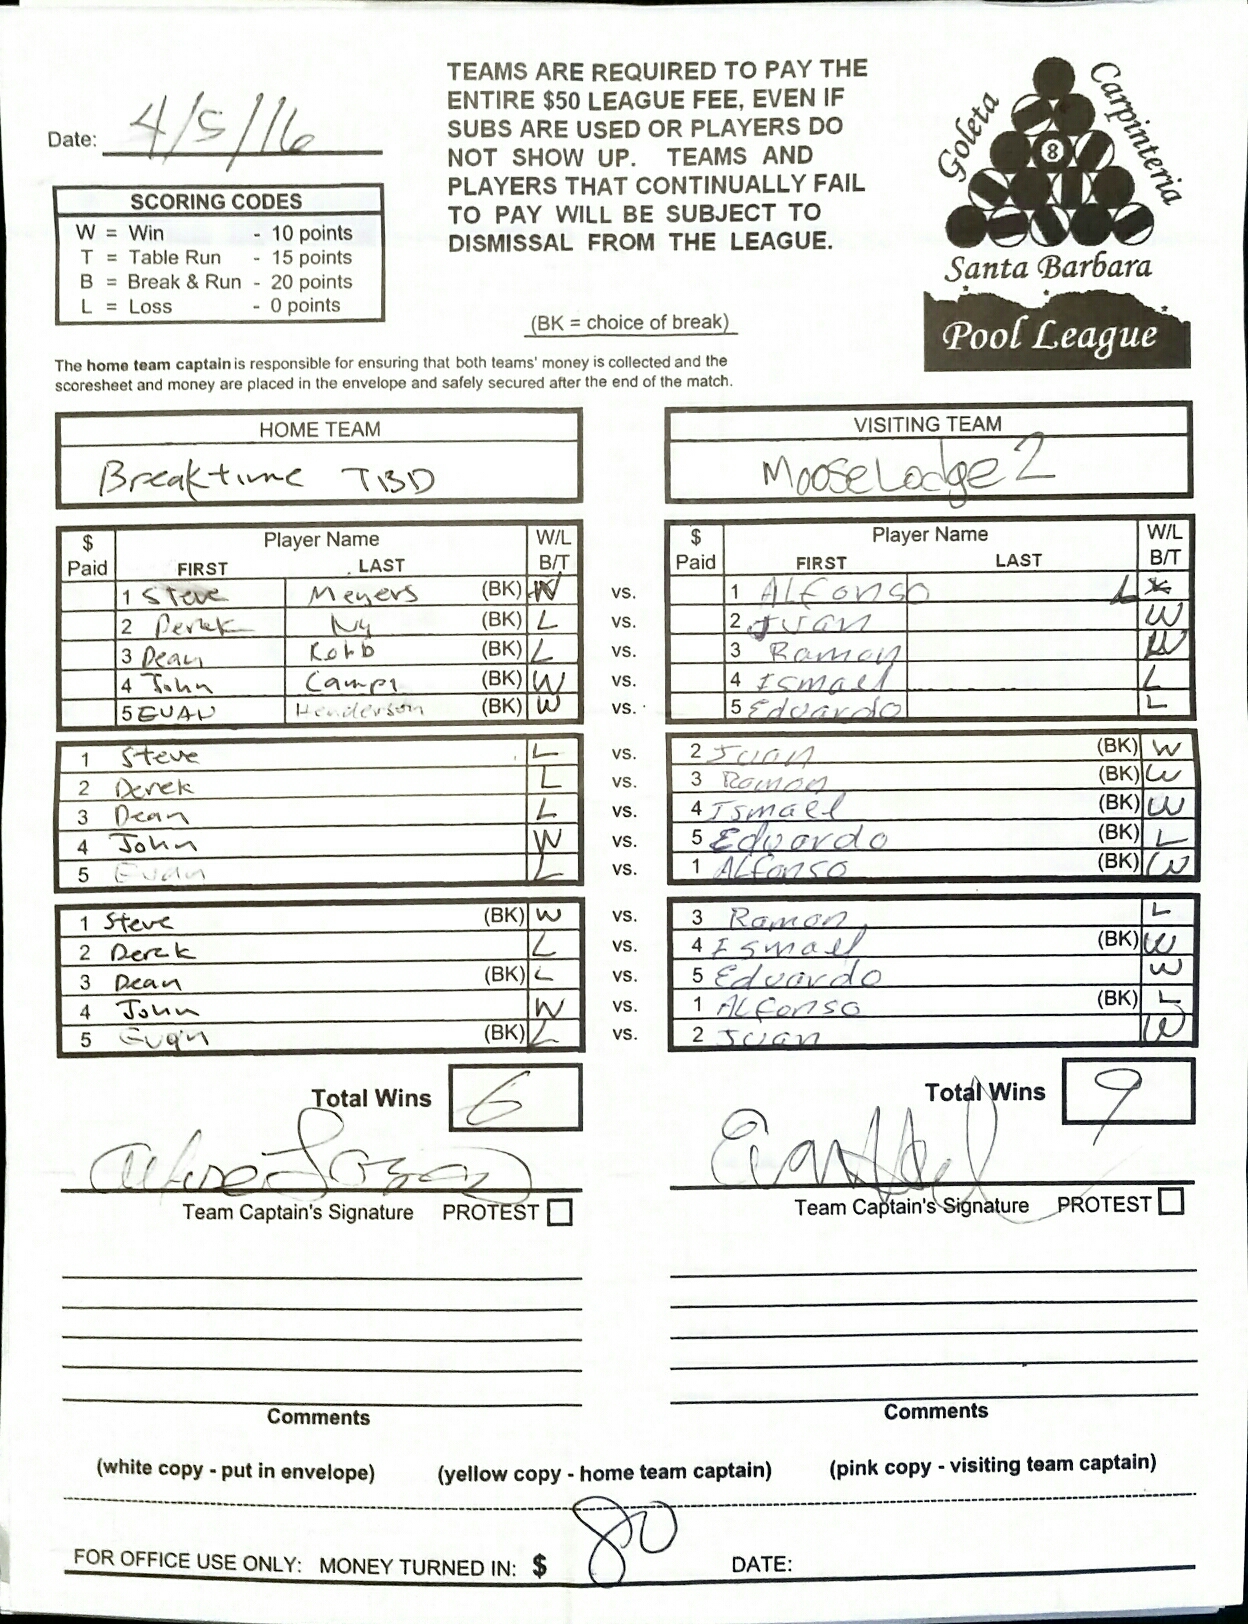 TEAMS ARE REQUIRED TO PAY THE
ENTIRE $50 LEAGUE FEE, EVEN IF
SUBS ARE USED OR PLAYERS DO
NOT SHOW UP. TEAMS AND
PLAYERS THAT CONTINUALLY FAIL
TO PAY WILL BE SUBJECT TO
DISMISSAL FROM THE LEAGUE.
Goleta
Carpinteria
8
Santa Barbara
Pool League
Date: 4/5/16
SCORING CODES
W = Win - 10 points
T = Table Run - 15 points
B = Break & Run - 20 points
L = Loss - 0 points
(BK = choice of break)
The home team captain is responsible for ensuring that both teams' money is collected and the
scoresheet and money are placed in the envelope and safely secured after the end of the match.
HOME TEAM VISITING TEAM
Breaktime TBD Moose Lodge 2
$ Player Name W/L $ Player Name W/L
Paid FIRST LAST B/T Paid FIRST LAST B/T
1 Steve Meyers (BK) W vs. 1 Alfonso L
2 Derek Ny (BK) L vs. 2 Juan W
3 Dean Robb (BK) L vs. 3 Ramon W
4 John Campi (BK) W vs. 4 Ismael L
5 EVAN Henderson (BK) W vs. 5 Eduardo L
1 Steve L vs. 2 Juan (BK) W
2 Derek L vs. 3 Ramon (BK) W
3 Dean L vs. 4 Ismael (BK) W
4 John W vs. 5 Eduardo (BK) L
5 Evan L vs. 1 Alfonso (BK) W
1 Steve (BK) W vs. 3 Ramon L
2 Derek L vs. 4 Ismael (BK) W
3 Dean (BK) L vs. 5 Eduardo W
4 John W vs. 1 Alfonso (BK) L
5 Evan (BK) L vs. 2 Juan W
Total Wins 6 Total Wins 9
Team Captain's Signature PROTEST Team Captain's Signature PROTEST
Comments Comments
(white copy - put in envelope) (yellow copy - home team captain) (pink copy - visiting team captain)
FOR OFFICE USE ONLY: MONEY TURNED IN: $ 80 DATE: